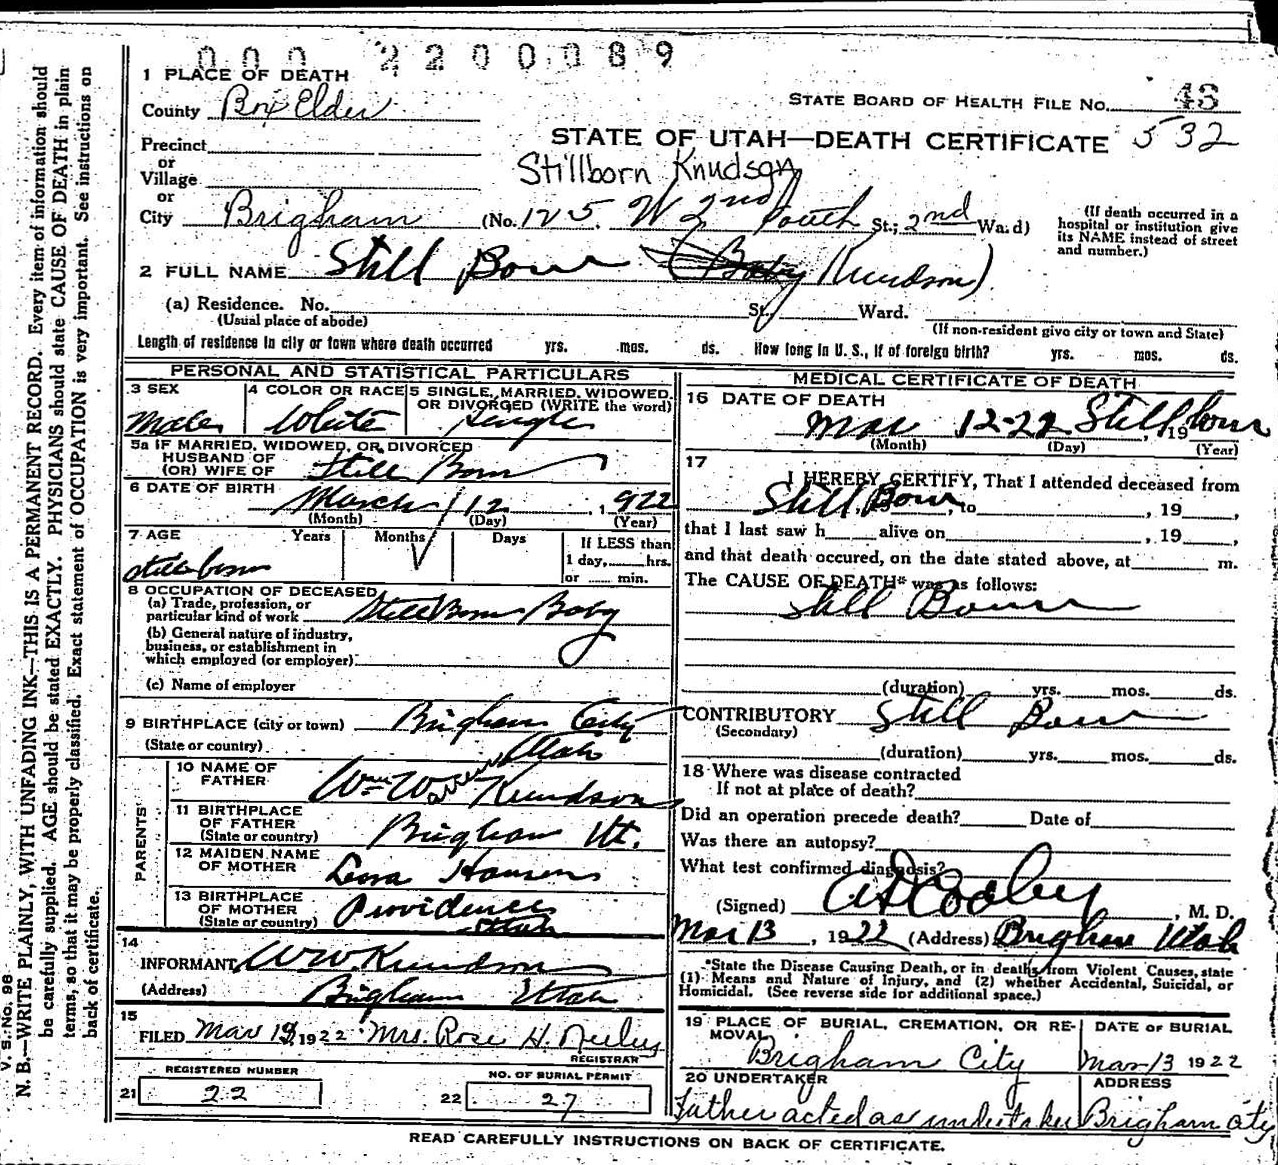 000 2200089
1 PLACE OF DEATH
County Box Elder
STATE BOARD OF HEALTH FILE NO. 43
STATE OF UTAH—DEATH CERTIFICATE 532
Precinct
or
Village
Stillborn Knudson
or
City Brigham (No. 125 W 2nd South St.; 2nd Ward)
(If death occurred in a hospital or institution give its NAME instead of street and number.)
2 FULL NAME Still Born (Baby Knudson)
(a) Residence. No. St. Ward.
(Usual place of abode) (If non-resident give city or town and State)
Length of residence in city or town where death occurred yrs. mos. ds. How long in U. S., if of foreign birth? yrs. mos. ds.
PERSONAL AND STATISTICAL PARTICULARS
3 SEX 4 COLOR OR RACE 5 SINGLE, MARRIED, WIDOWED, OR DIVORCED (WRITE the word)
Male White Single
5a IF MARRIED, WIDOWED, OR DIVORCED
HUSBAND OF
(OR) WIFE OF Still Born
6 DATE OF BIRTH March 12, 1922
(Month) (Day) (Year)
7 AGE Years Months Days If LESS than 1 day, hrs. or min.
still born
8 OCCUPATION OF DECEASED
(a) Trade, profession, or
particular kind of work Still Born Baby
(b) General nature of industry,
business, or establishment in
which employed (or employer)
(c) Name of employer
9 BIRTHPLACE (city or town) Brigham City
(State or country) Utah
PARENTS
10 NAME OF
FATHER Wm Warren Knudson
11 BIRTHPLACE
OF FATHER
(State or country) Brigham Ut.
12 MAIDEN NAME
OF MOTHER Leora Hansen
13 BIRTHPLACE
OF MOTHER Providence
(State or country) Utah
14
INFORMANT W W Knudson
(Address) Brigham Utah
15
FILED Mar 13, 1922 Mrs. Rose H.
REGISTRAR
REGISTERED NUMBER NO. OF BURIAL PERMIT
21 22 22 27
MEDICAL CERTIFICATE OF DEATH
16 DATE OF DEATH
Mar 12-22 Still born, 19
(Month) (Day) (Year)
17
I HEREBY CERTIFY, That I attended deceased from
Still Born, to , 19 ,
that I last saw h alive on , 19 ,
and that death occured, on the date stated above, at m.
The CAUSE OF DEATH* was as follows:
Still Born
(duration) yrs. mos. ds.
CONTRIBUTORY Still Born
(Secondary)
(duration) yrs. mos. ds.
18 Where was disease contracted
If not at place of death?
Did an operation precede death? Date of
Was there an autopsy?
What test confirmed diagnosis?
(Signed) AD Cooley, M. D.
Mar 13, 1922 (Address) Brigham Utah
*State the Disease Causing Death, or in deaths from Violent Causes, state
(1) Means and Nature of Injury, and (2) whether Accidental, Suicidal, or
Homicidal. (See reverse side for additional space.)
19 PLACE OF BURIAL, CREMATION, OR REMOVAL DATE OF BURIAL
Brigham City Mar 13 1922
20 UNDERTAKER ADDRESS
Father acted as undertaker Brigham City
READ CAREFULLY INSTRUCTIONS ON BACK OF CERTIFICATE.
V. S. No. 98
N. B.—WRITE PLAINLY, WITH UNFADING INK—THIS IS A PERMANENT RECORD. Every item of information should
be carefully supplied. AGE should be stated EXACTLY. PHYSICIANS should state CAUSE OF DEATH in plain
terms, so that it may be properly classified. Exact statement of OCCUPATION is very important. See instructions on
back of certificate.